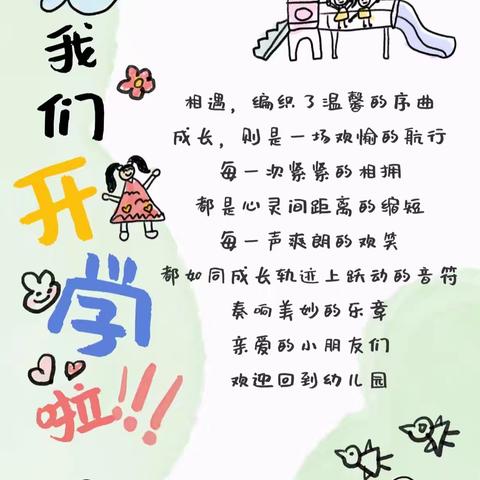 我们开学啦!!!
相遇，编织了温馨的序曲
成长，则是一场欢愉的航行
每一次紧紧的相拥
都是心灵间距离的缩短
每一声爽朗的欢笑
都如同成长轨迹上跃动的音符
奏响美妙的乐章
亲爱的小朋友们
欢迎回到幼儿园